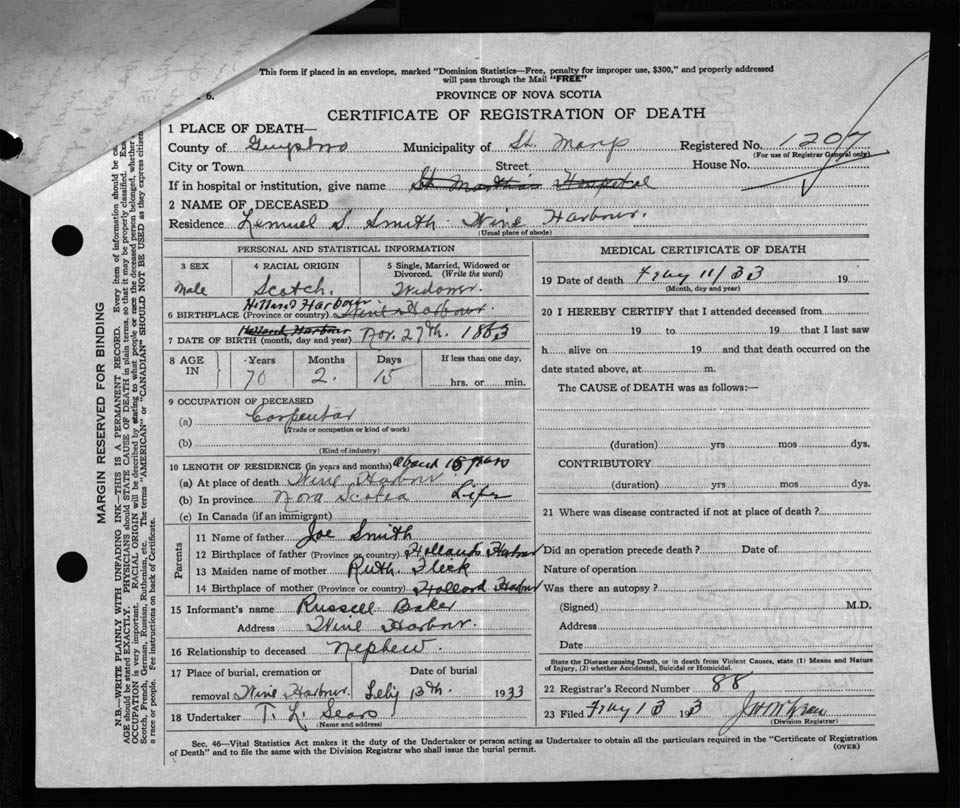 This form if placed in an envelope, marked "Dominion Statistics—Free, penalty for improper use, $300," and properly addressed
will pass through the Mail "FREE"
6.
PROVINCE OF NOVA SCOTIA
CERTIFICATE OF REGISTRATION OF DEATH
1 PLACE OF DEATH—
County of Guysboro Municipality of St. Marys Registered No. 1207
(For use of Registrar General only)
City or Town Street House No.
If in hospital or institution, give name St Martha's Hospital
2 NAME OF DECEASED
Residence Lemuel S. Smith Wine Harbour.
(Usual place of abode)
PERSONAL AND STATISTICAL INFORMATION
3 SEX 4 RACIAL ORIGIN 5 Single, Married, Widowed or Divorced. (Write the word)
Male Scotch. Widower.
Holland Harbour
6 BIRTHPLACE (Province or country) Wine Harbour.
Holland Harbour
7 DATE OF BIRTH (month, day and year) Nov. 27th. 1863
8 AGE IN Years Months Days If less than one day,
70 2. 15 hrs. or min.
9 OCCUPATION OF DECEASED
(a) Carpentar
(Trade or occupation or kind of work)
(b)
(Kind of industry)
10 LENGTH OF RESIDENCE (in years and months) about 15 years
(a) At place of death Wine Harbour
(b) In province Nova Scotia Life
(c) In Canada (if an immigrant)
Parents
11 Name of father Joe Smith
12 Birthplace of father (Province or country) Holland Harbour
13 Maiden name of mother Ruth Fleck
14 Birthplace of mother (Province or country) Holland Harbour
15 Informant's name Russell Baker
Address Wine Harbour.
16 Relationship to deceased Nephew
17 Place of burial, cremation or Date of burial
removal Wine Harbour. 13th. 1933
18 Undertaker T. L. Sears
(Name and address)
MEDICAL CERTIFICATE OF DEATH
19 Date of death 11/33 19
(Month, day and year)
20 I HEREBY CERTIFY that I attended deceased from
19 to 19 that I last saw
h alive on 19 and that death occurred on the
date stated above, at m.
The CAUSE of DEATH was as follows:—
(duration) yrs mos dys.
CONTRIBUTORY
(duration) yrs mos dys.
21 Where was disease contracted if not at place of death?
Did an operation precede death? Date of
Nature of operation
Was there an autopsy?
(Signed) M.D.
Address
Date
State the Disease causing Death, or in death from Violent Causes, state (1) Means and Nature
of Injury, (2) whether Accidental, Suicidal or Homicidal.
22 Registrar's Record Number 88
23 Filed 13 193
(Division Registrar)
Sec. 46—Vital Statistics Act makes it the duty of the Undertaker or person acting as Undertaker to obtain all the particulars required in the "Certificate of Registration
of Death" and to file the same with the Division Registrar who shall issue the burial permit.
(OVER)
MARGIN RESERVED FOR BINDING
N.B.—WRITE PLAINLY WITH UNFADING INK—THIS IS A PERMANENT RECORD. Every item of information should be
AGE should be stated EXACTLY. PHYSICIANS should STATE CAUSE OF DEATH in plain terms, so that it may be properly classified.
OCCUPATION is very important. RACIAL ORIGIN will be described by stating to what people or race the deceased person belonged, whether
Scotch, French, German, Russian, Ruthenian, etc. The terms "AMERICAN" or "CANADIAN" SHOULD NOT BE USED as they express citizen
a race or people. See instructions on back of Certificate.